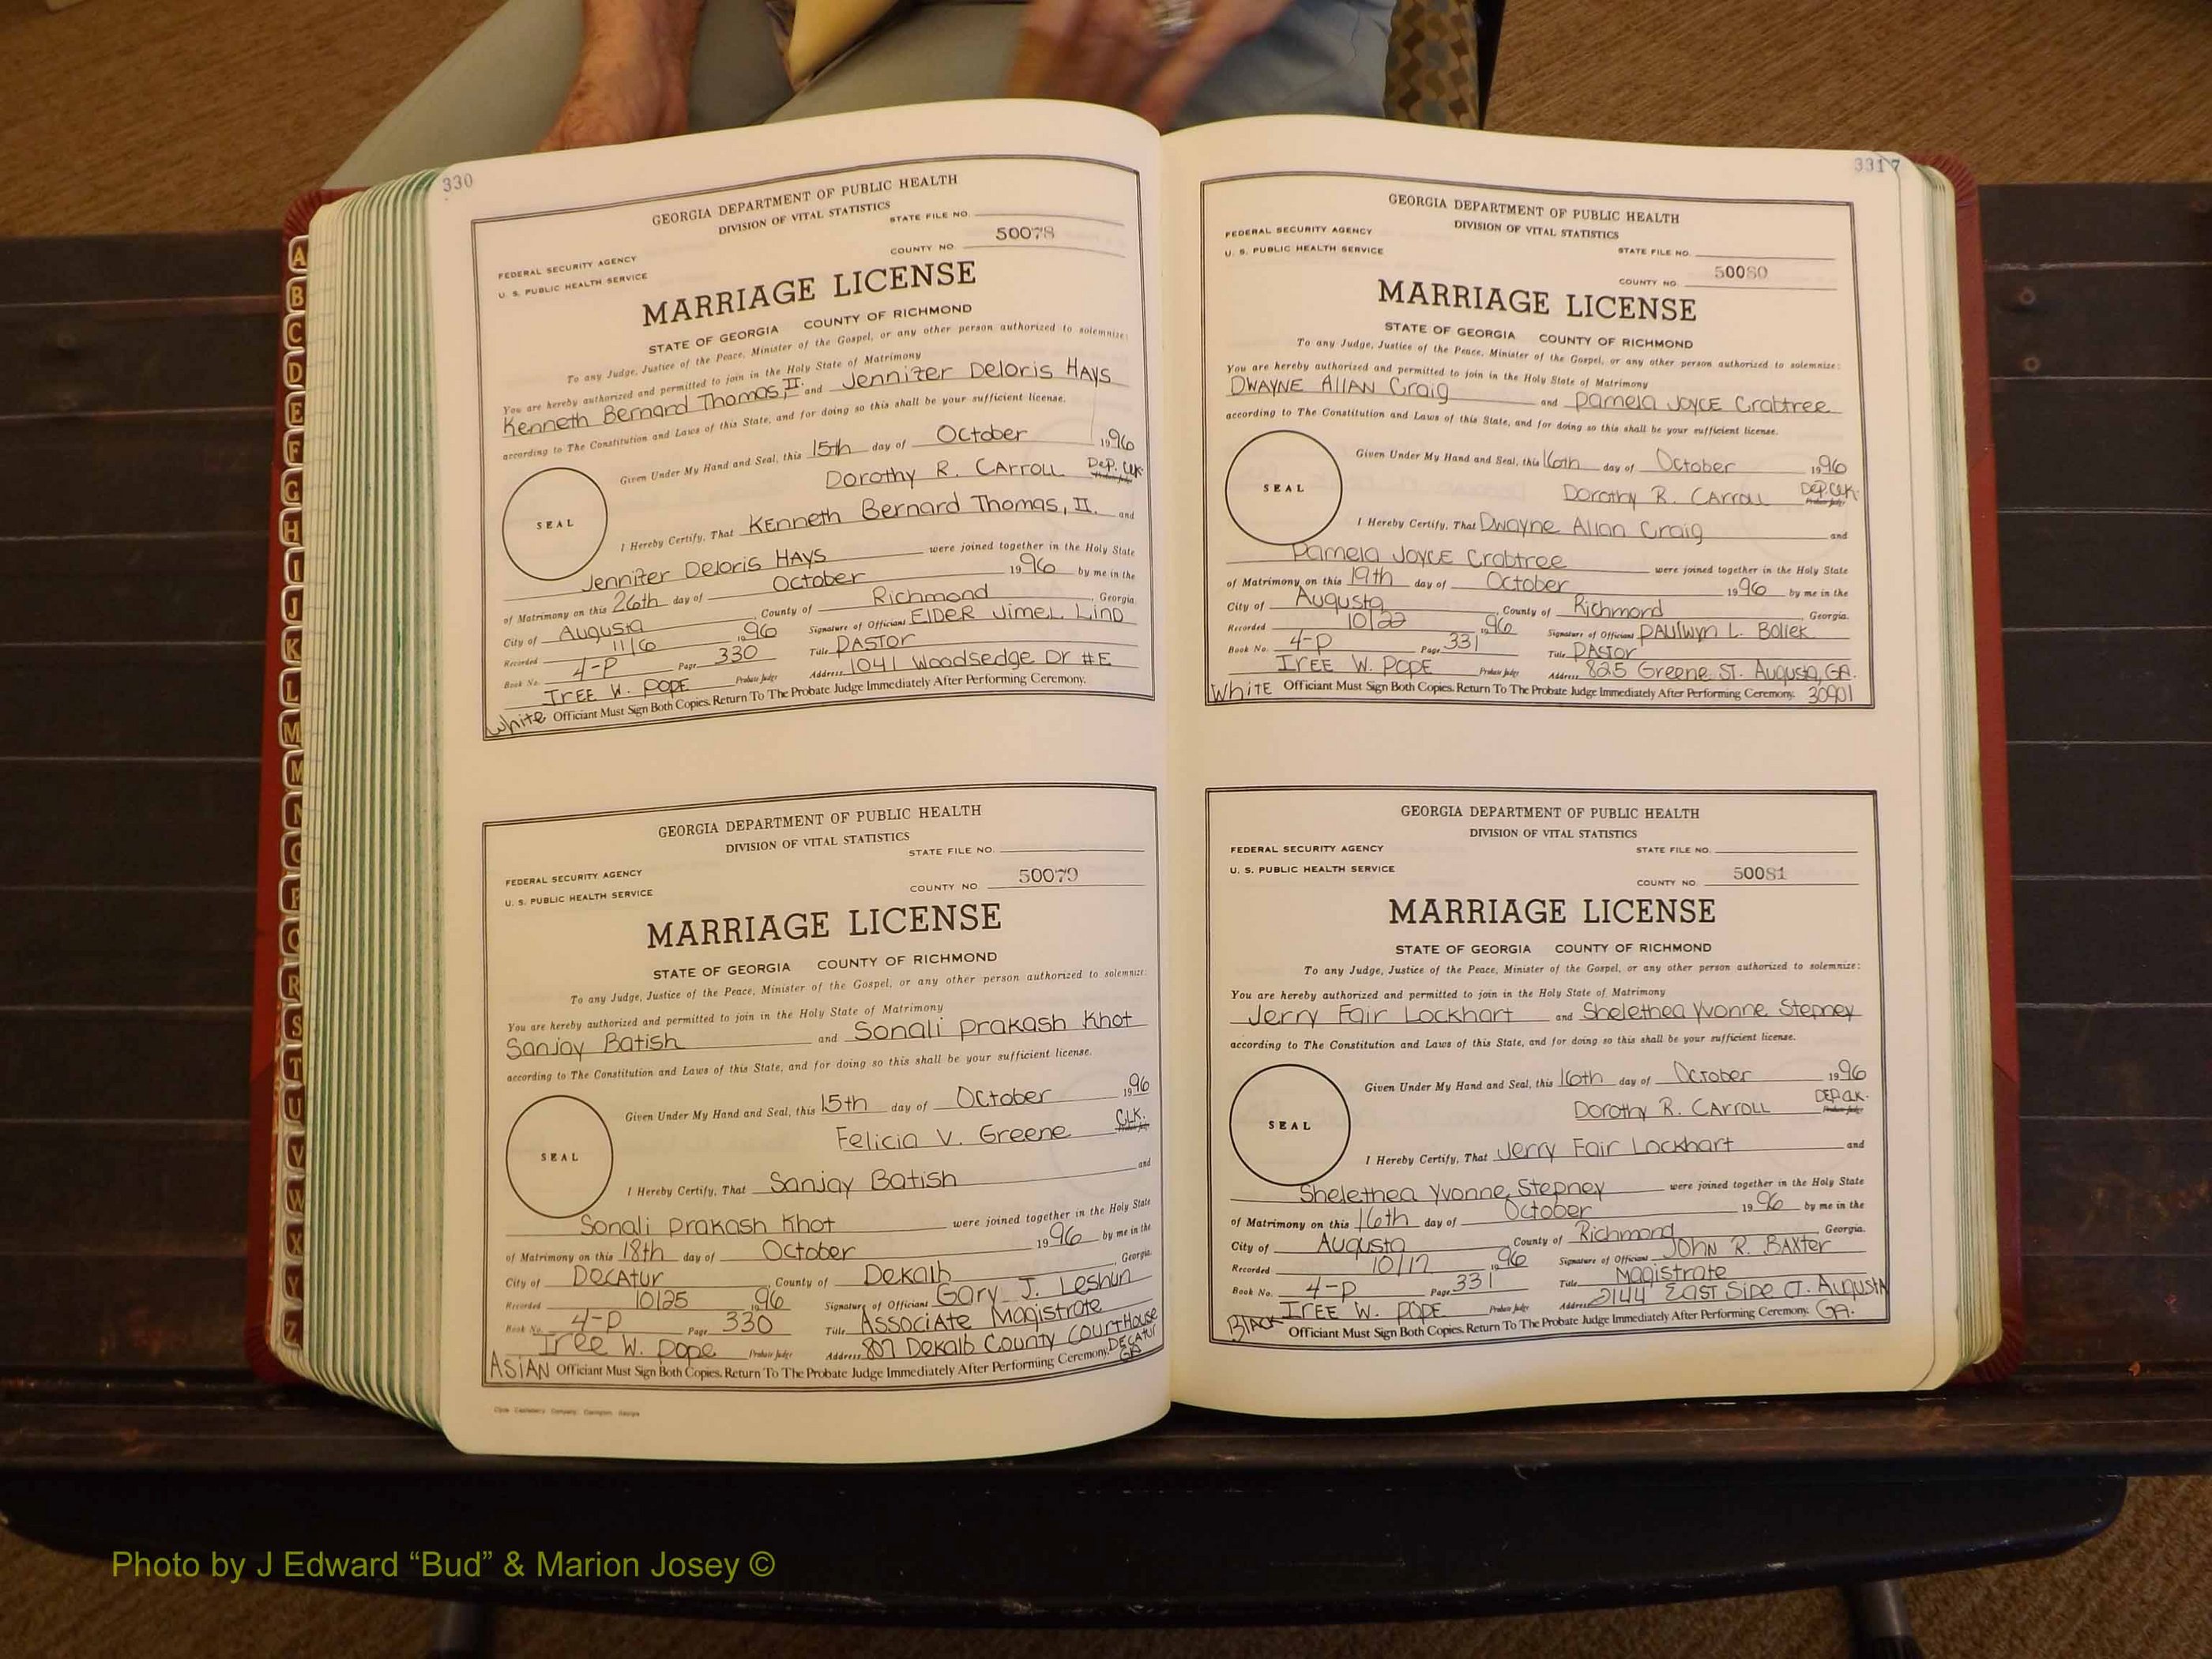 330
GEORGIA DEPARTMENT OF PUBLIC HEALTH
DIVISION OF VITAL STATISTICS
STATE FILE NO.
FEDERAL SECURITY AGENCY
COUNTY NO. 50078
U. S. PUBLIC HEALTH SERVICE
MARRIAGE LICENSE
STATE OF GEORGIA COUNTY OF RICHMOND
To any Judge, Justice of the Peace, Minister of the Gospel, or any other person authorized to solemnize:
You are hereby authorized and permitted to join in the Holy State of Matrimony
Kenneth Bernard Thomas, II. and Jennifer Deloris HAYS
according to The Constitution and Laws of this State, and for doing so this shall be your sufficient license.
Given Under My Hand and Seal, this 15th day of October 1996
Dorothy R. CArroll Dep. Clk.
SEAL
I Hereby Certify, That Kenneth Bernard Thomas, II. and
Jennifer Deloris HAYS were joined together in the Holy State
of Matrimony on this 26th day of October 1996 by me in the
City of Augusta County of Richmond Georgia
Recorded 11/6 1996 Signature of Officiant ElDER Jimel Lind
Book No. 4-P Page 330 Title PASTOR
IrEE W. POPE Probate Judge Address 1041 Woodsedge Dr #E
White Officiant Must Sign Both Copies. Return To The Probate Judge Immediately After Performing Ceremony.
GEORGIA DEPARTMENT OF PUBLIC HEALTH
DIVISION OF VITAL STATISTICS
STATE FILE NO.
FEDERAL SECURITY AGENCY
COUNTY NO. 50079
U. S. PUBLIC HEALTH SERVICE
MARRIAGE LICENSE
STATE OF GEORGIA COUNTY OF RICHMOND
To any Judge, Justice of the Peace, Minister of the Gospel, or any other person authorized to solemnize:
You are hereby authorized and permitted to join in the Holy State of Matrimony
Sanjay Batish and Sonali Prakash Khot
according to The Constitution and Laws of this State, and for doing so this shall be your sufficient license.
Given Under My Hand and Seal, this 15th day of October 1996
Felicia V. Greene CLK.
SEAL
I Hereby Certify, That Sanjay Batish and
Sonali Prakash Khot were joined together in the Holy State
of Matrimony on this 18th day of October 1996 by me in the
City of DECAtur County of Dekalb Georgia.
Recorded 10/25 1996 Signature of Officiant Gary J. Leshun
Book No. 4-P Page 330 Title Associate Magistrate
Iree W. Pope Probate Judge Address 807 Dekalb County CourtHouse DECATUR GA
ASIAN Officiant Must Sign Both Copies. Return To The Probate Judge Immediately After Performing Ceremony.
3317
GEORGIA DEPARTMENT OF PUBLIC HEALTH
DIVISION OF VITAL STATISTICS
FEDERAL SECURITY AGENCY
STATE FILE NO.
U. S. PUBLIC HEALTH SERVICE
COUNTY NO. 50080
MARRIAGE LICENSE
STATE OF GEORGIA COUNTY OF RICHMOND
To any Judge, Justice of the Peace, Minister of the Gospel, or any other person authorized to solemnize:
You are hereby authorized and permitted to join in the Holy State of Matrimony
DWAYNE Allan Craig and Pamela JOYCE Crabtree
according to The Constitution and Laws of this State, and for doing so this shall be your sufficient license.
Given Under My Hand and Seal, this 16th day of October 1996
Dorothy R. CArroll Dep. Clk.
SEAL
I Hereby Certify, That Dwayne Allan Craig and
Pamela JOYCE Crabtree were joined together in the Holy State
of Matrimony on this 19th day of October 1996 by me in the
City of Augusta County of Richmond Georgia.
Recorded 10/22 1996 Signature of Officiant PAUlwyn L. Boliek
Book No. 4-P Page 331 Title PASTOR
IrEE W. POPE Probate Judge Address 825 Greene ST. Augusta, GA.
WHITE Officiant Must Sign Both Copies. Return To The Probate Judge Immediately After Performing Ceremony. 30901
GEORGIA DEPARTMENT OF PUBLIC HEALTH
DIVISION OF VITAL STATISTICS
FEDERAL SECURITY AGENCY
STATE FILE NO.
U. S. PUBLIC HEALTH SERVICE
COUNTY NO. 50081
MARRIAGE LICENSE
STATE OF GEORGIA COUNTY OF RICHMOND
To any Judge, Justice of the Peace, Minister of the Gospel, or any other person authorized to solemnize:
You are hereby authorized and permitted to join in the Holy State of Matrimony
Jerry Fair Lockhart and Shelethea Yvonne Stepney
according to The Constitution and Laws of this State, and for doing so this shall be your sufficient license.
Given Under My Hand and Seal, this 16th day of October 1996
Dorothy R. CArroll DEP. CLK.
SEAL
I Hereby Certify, That Jerry Fair Lockhart and
Shelethea Yvonne Stepney were joined together in the Holy State
of Matrimony on this 16th day of October 1996 by me in the
City of Augusta County of Richmond Georgia.
Recorded 10/17 1996 Signature of Officiant JOHN R. BAXter
Book No. 4-P Page 331 Title Magistrate
IrEE W. POPE Probate Judge Address 2144 EAST SiDe CT. Augusta GA.
BlACK Officiant Must Sign Both Copies. Return To The Probate Judge Immediately After Performing Ceremony.
A
B
C
D
E
F
G
H
I
J
K
L
M
M
N
O
P
Q
R
S
T
U
V
W
X
Y
Z
Photo by J Edward “Bud” & Marion Josey ©